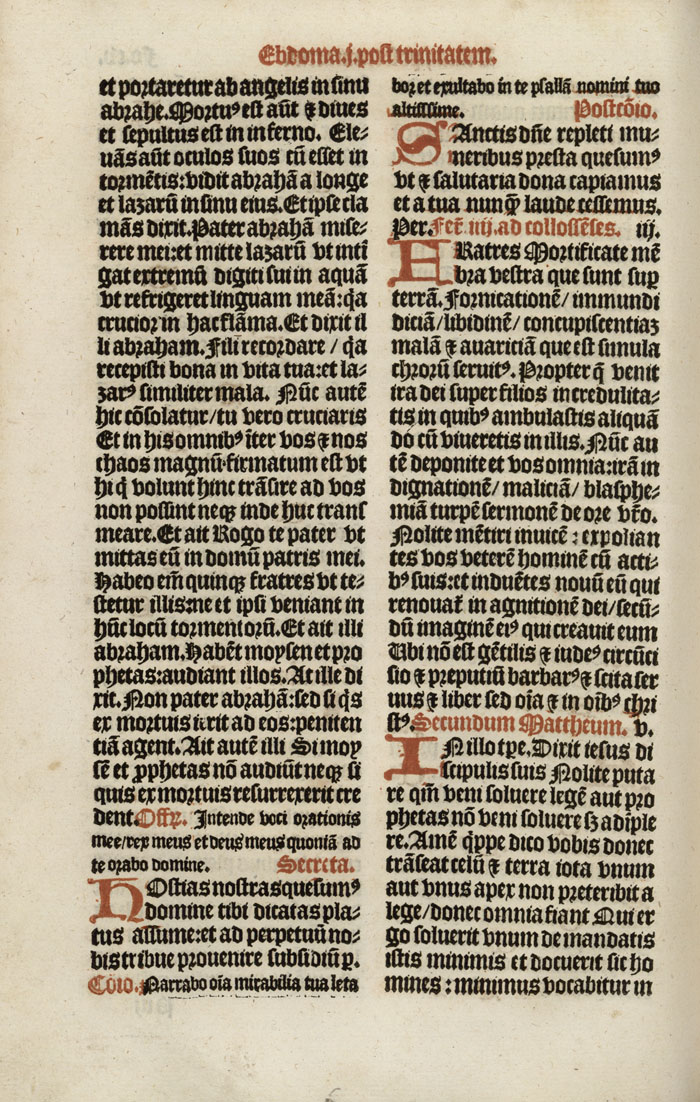 Ebdoma.j.post trinitatem.
et portaretur ab angelis in sinu
abrahe.Mortuꝰ est aūt ⁊ diues
et sepultus est in inferno. Ele-
uās aūt oculos suos cū esset in
tormētis:vidit abrahā a longe
et lazarū in sinu eius.Et ipse cla
mās dixit.Pater abrahā mise-
rere mei:et mitte lazarū vt intī
gat extremū digiti sui in aquā
vt refrigeret linguam meā:q̄a
crucior in hac flāma.Et dixit il
li abraham.Fili recordare / q̄a
recepisti bona in vita tua:et la-
zarꝰ similiter mala. Nūc autē
hic cōsolatur/tu vero cruciaris
Et in his omnibꝰ īter vos ⁊ nos
chaos magnū.firmatum est vt
hi q̄ volunt hinc trāsire ad vos
non possint neqꝫ inde huc trans
meare.Et ait Rogo te pater vt
mittas eū in domū patris mei.
Habeo em̄ quinqꝫ fratres vt te-
stetur illis:ne et ipsi veniant in
hūc locū tormentorū.Et ait illi
abraham.Habēt moysen et pro
phetas:audiant illos.At ille di
xit.Non pater abrahā:sed si q̄s
ex mortuis ierit ad eos:peniten
tiā agent.Ait autē illi Si moy
sē et ꝓphetas nō audiūt neqꝫ si
quis ex mortuis resurrexerit cre
dent.Offr. Intende voci orationis
mee/rex meus et deus meus quoniā ad
te orabo domine. Secreta.
HOstias nostras quesumꝰ
domine tibi dicatas pla-
tus assume:et ad perpetuū no-
bis tribue prouenire subsidiū ꝑ.
Cōio. Narrabo oīa mirabilia tua leta
bor et exultabo in te psallā nomini tuo
altissime. Postcōio.
SAnctis dn̄e repleti mu-
neribus presta quesumꝰ
vt ⁊ salutaria dona capiamus
et a tua nunꝙ̄ laude cessemus.
Per.Feē. iiij. ad collossēses. iij.
FRatres Mortificate mē
bra vestra que sunt suꝑ
terrā.Fornicationē/ immundi
diciā/libidinē/ concupiscentiaꝫ
malā ⁊ auariciā que est simula
chrorū seruitꝰ. Propter q̄ venit
ira dei super filios incredulita-
tis in quibꝰ ambulastis aliquā
do cū viueretis in illis.Nūc au
tē deponite et vos omnia:irā in
dignationē/ maliciā/ blasphe-
miā turpē sermonē de ore vr̄o.
Nolite mētiri inuicē : expolian
tes vos veterē hominē cū acti-
bꝰ suis:et induētes nouū eū qui
renouat̄ in agnitionē dei/secū-
dū imaginē eiꝰ qui creauit eum
Ubi nō est gētilis ⁊ iudeꝰ circūci
sio ⁊ preputiū barbarꝰ ⁊ scita ser
uus ⁊ liber sed oīa ⁊ in oībꝰ chri
stꝰ.Secundum Mattheum. v.
IN illo tꝑe.Dixit iesus di
scipulis suis Nolite puta
re qm̄ veni soluere legē aut pro
phetas nō veni soluere sꝫ adīple
re.Amē q̄ppe dico vobis donec
trāseat celū ⁊ terra iota vnum
aut vnus apex non preteribit a
lege/donec omnia fiant Qui er
go soluerit vnum de mandatis
istis minimis et docuerit sic ho
mines : minimus vocabitur in